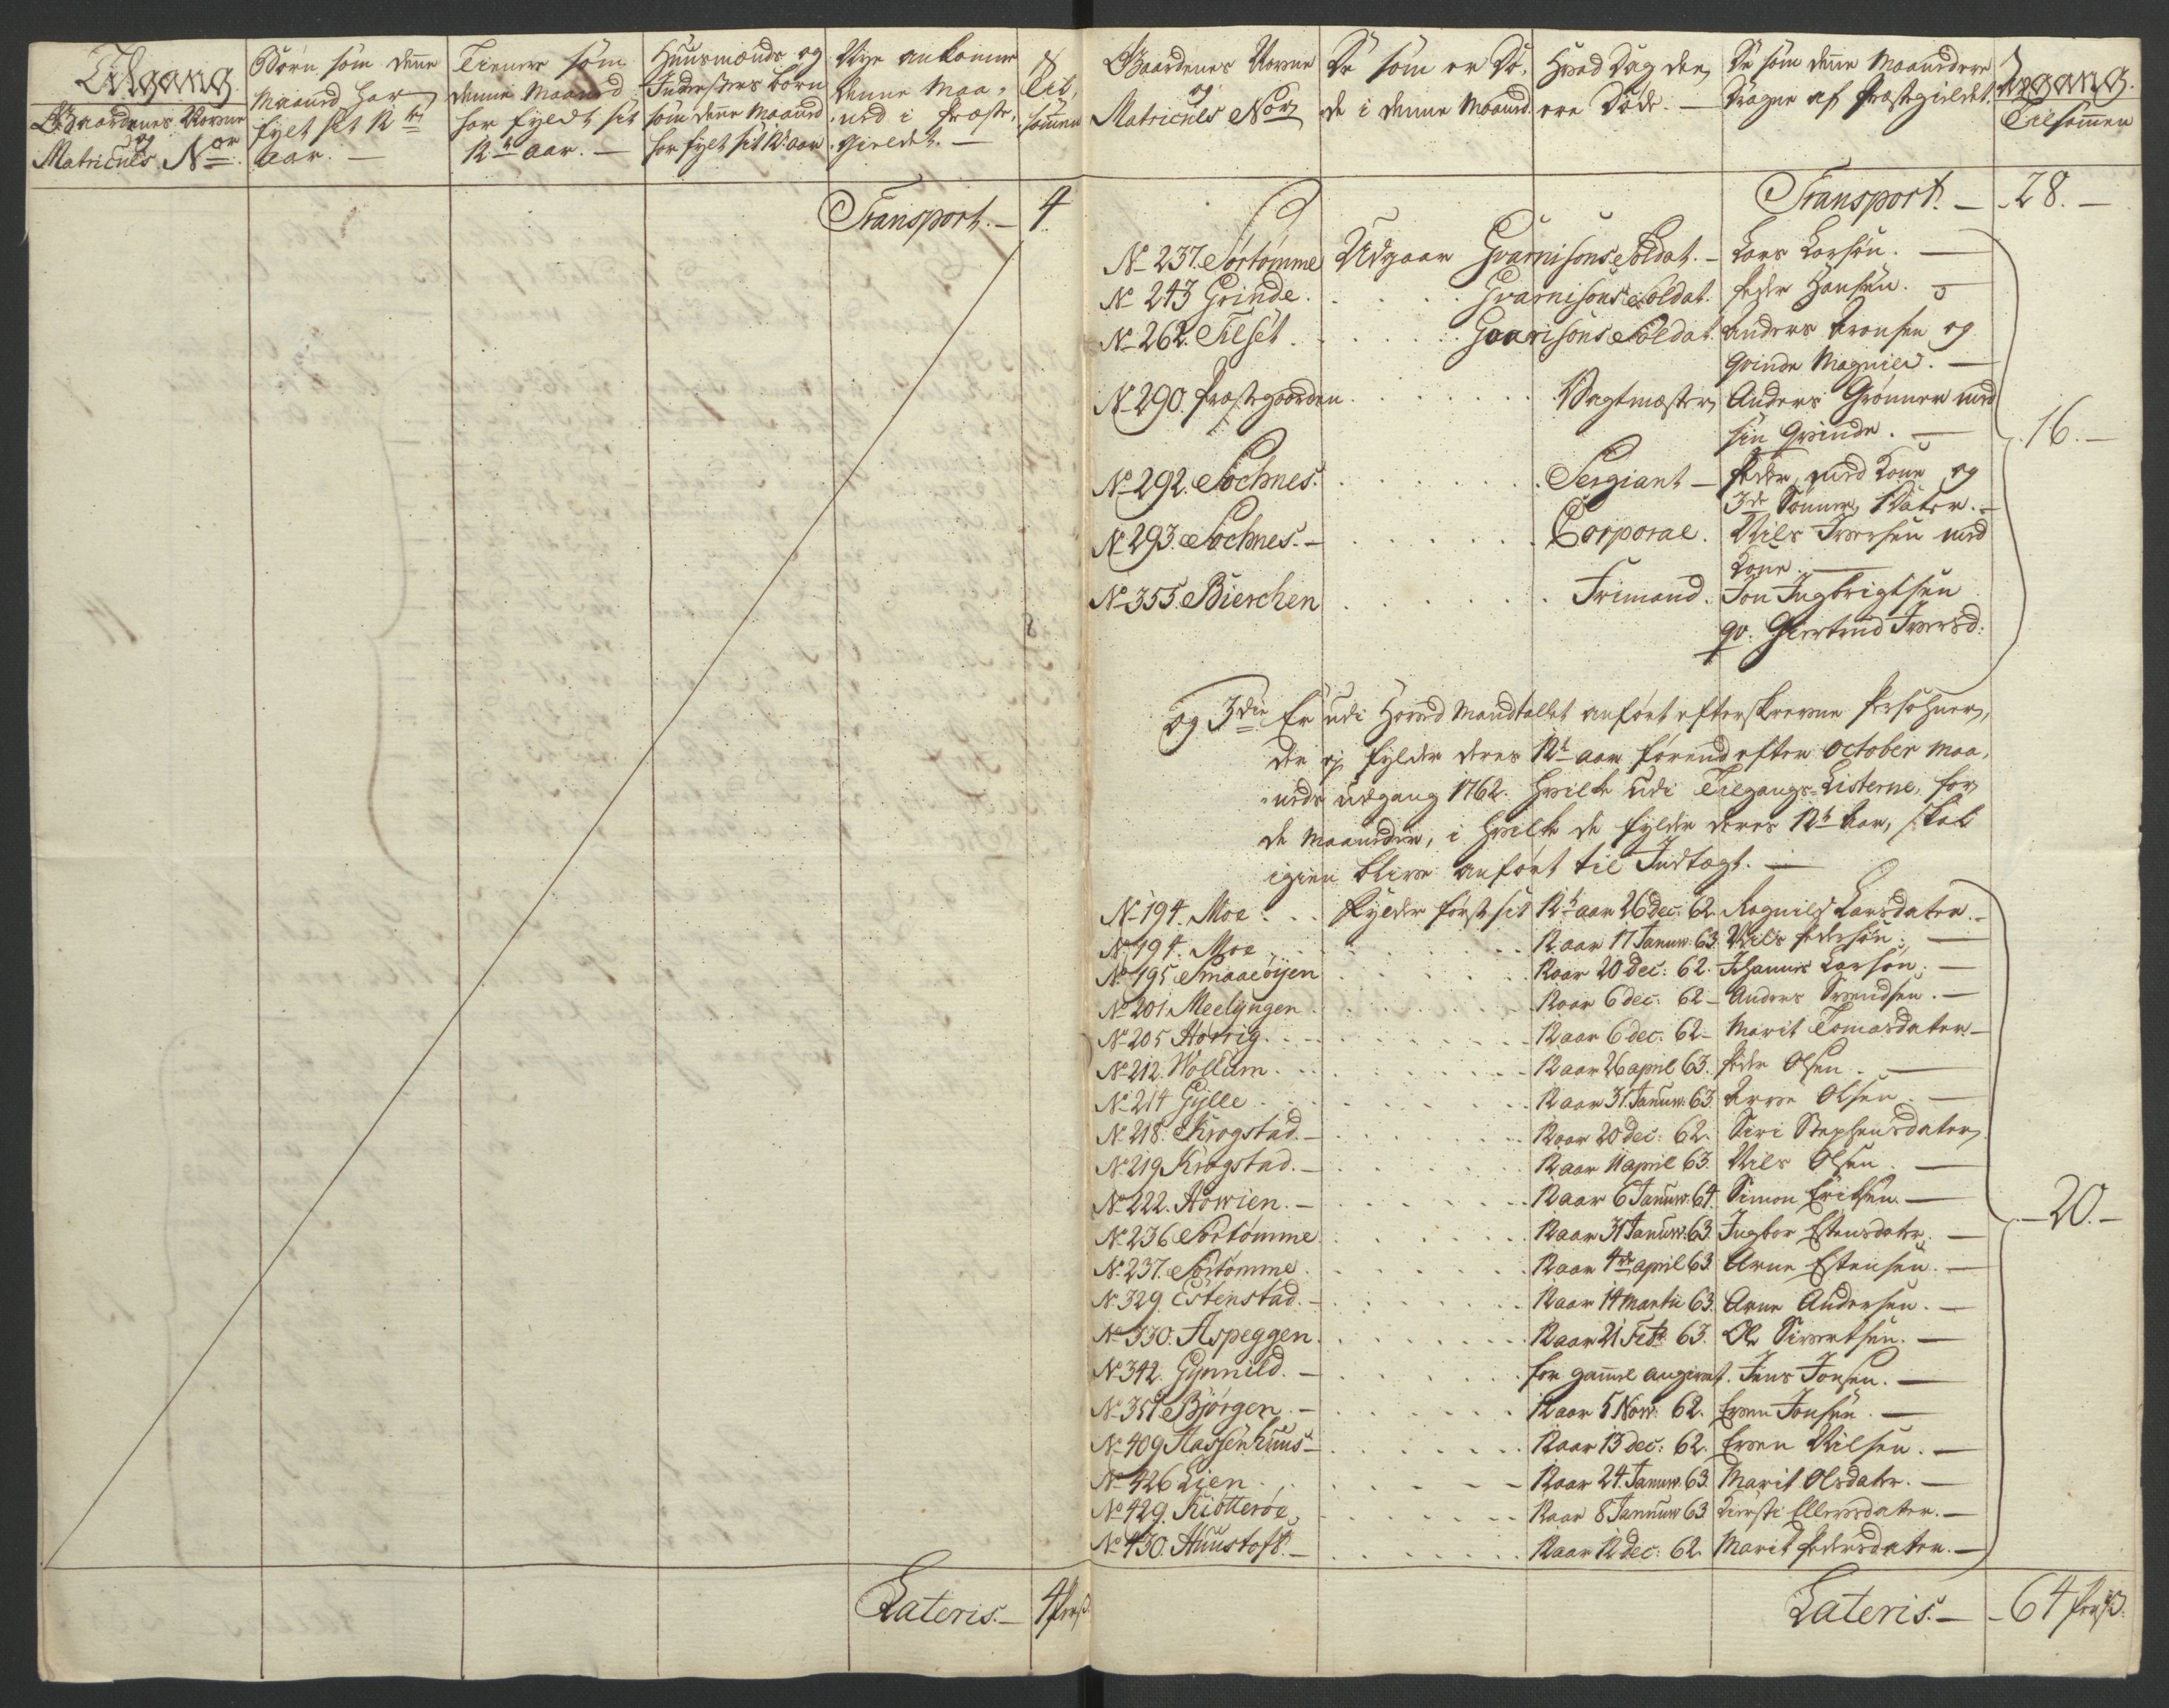 Tilgang.
Gaardenes Navne
og
Matriculs Nor.
Børn som denne
Maaned har
fylt sit 12te
aar. —
Tienere som
denne Maaned
har fyldt sit
12te aar. —
Huusmænds og
Inderstes børn
som dene Maaned
har fylt sit 12te aar
Nye ankomne
denne Maa-
ned i Præste-
Gieldet. —
Til-
sommen
Transport. — 4
Lateris. — 4 pers:
Gaardenes Navne
og
Matriculs Nor
De som er Dø-
de i denne Maaned.
Hvad Dag den
ere Døde. —
De som denne Maaned ere
Dragne af Præstegieldet.
Afgang.
Tilsammen
Transport. — 28. —
No 237. Sørtømme Udgaar Gvarnisons Soldat. — Lars Larsøn. —
No 243 Grinde. Gvarnisons Soldat. Peder Hansen. —
No 262. Tilset. Gvarnisons Soldat. Anders Arensen og
Qvinde Magnild. —
No 290. Præstegaarden. Vagtmæster Anders Grønner med
sin Qvinde. —
16. —
No 292. Sochnes. Sergiant — Peder, med Kone og
3de Sønner, 1 Dater. —
No 293. Sochnes. — Corporal. Nils Iversen med
Kone. —
No 355. Bierchen Frimand. Jon Ingbrigtsen
qv. Giertrud Iversd:
og 3die Er udi Hoved Mandtallet anført efterskrevne Persohner,
der ej fylder deres 12te aar førend efter October Maa-
neds udgang 1762. hvilke udi Tilgangs-Listerne, for
de Maaneder, i hvilke de fylder deres 12te Aar, skal
igien blive anført til Indtægt. —
No 194. Moe. fylder først sit 12te aar 26 Dec: 62. Ragnild Larsdater. —
No 194. Moe 12 aar 17 Januar: 63. Nils Pedersøn. —
No 195 Smaaeøyen 12 aar 20 Dec: 62. Johannes Larsøn. —
No 201 Meelyngen. 12 aar 6 dec: 62 — Anders Svendsen. —
No 205 Hovrig. 12 aar 6 dec: 62 — Marit Tomasdater —
No 212. Wollum. 12 aar 26 april 63. Peder Olsen. —
No 214 Gylle 12 aar 31 Januar: 63. Arne Olsen. —
No 218. Krogstad. — 12 aar 20 dec: 62. Siri Stephensdater
No 219 Krogstad. — 12 aar 11 april 63. Nils Olsen. —
No 222. Howien. — 12 aar 6 Januar: 64. Simon Erichsen. —
20. —
No 236 Sørtømme. 12 aar 31 Januar: 63. Ingbor Estensdater. —
No 237. Sørtømme. 12 aar 4de april 63. Arne Estensen. —
No 329. Estenstad. — 12 aar 14 Martii 63. Arne Andersen. —
No 330. Aspeggen. 12 aar 21 Febr 63. Ole Sivertsen. —
No 342. Gynnild. — for gammel angivet. Jens Jonsen. —
No 351 Bjørgen. — 12 aar 5 Nov: 62. Even Jonsen. —
No 409 Aassenhuus — 12 aar 13 dec: 62. Even Nilsen. —
No 426 Lien. 12 aar 24 Januar: 63. Marit Olsdater. —
No 429. Kiøtterøe, 12 aar 8 Januar 63 Kiersti Ellevsdater. —
No 430. Huustoft. — 12 aar 12 dec: 62. Marit Pedersdater. —
Lateris. — 64 pers: